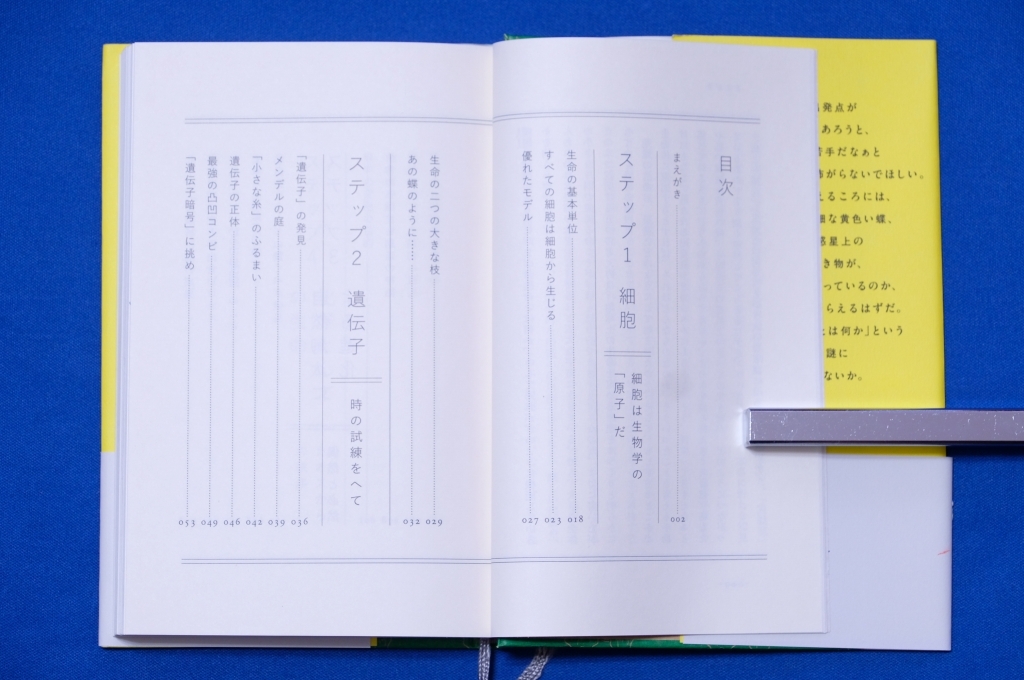 目次
まえがき 002
ステップ1 細胞
細胞は生物学の
「原子」だ
生命の基本単位 018
すべての細胞は細胞から生じる 023
優れたモデル 027
生命の二つの大きな枝 029
あの蝶のように…… 032
ステップ2 遺伝子
時の試練をへて
「遺伝子」の発見 036
メンデルの庭 039
「小さな糸」のふるまい 042
遺伝子の正体 046
最強の凸凹コンビ 049
「遺伝子暗号」に挑め 053
発点が
あろうと、
手だなぁと
がらないでほしい。
えるころには、
な黄色い蝶、
星上の
き物が、
っているのか、
らえるはずだ。
は何か」という
謎に
ないか。